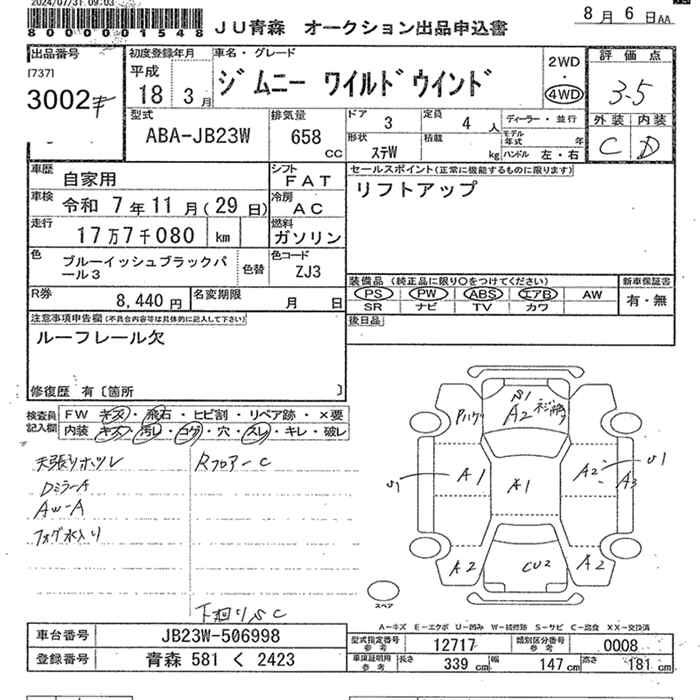 2024/07/31 09:03
8000001548
JU青森 オークション出品申込書
8月 6日AA
出品番号
[737]
3002
初度登録年月
平成
18 3月
車名・グレード
ジムニー ワイルドウインド
2WD
・
4WD
評価点
3-5
外装 内装
C D
型式
ABA-JB23W
排気量
658
CC
ドア 3
定員 4 人
ディーラー・並行
形状 ステW
積載 kg
モデル年式 年
ハンドル 左・右
車歴 自家用
シフト FAT
セールスポイント(正常に機能するものに限ります)
リフトアップ
車検 令和 7年11月(29日)
冷房 AC
走行 17万7千080 km
燃料 ガソリン
色 ブルーイッシュブラックパール3
色替
色コード ZJ3
装備品(純正品に限り○をつけてください)
新車保証書
PS PW ABS エアB AW
有・無
SR ナビ TV カワ
R券 8,440円
名変期限 月 日
後日品
注意事項申告欄(不具合内容等は具体的に記入して下さい)
ルーフレール欠
修復歴 有〔箇所 〕
検査員記入欄
FW キズ・飛石・ヒビ割・リペア跡・×要
内装 キズ・汚レ・コゲ・穴・スレ・キレ・破レ
天張りホツレ
Rフロアー C
DミラーA
AW-A
フォグ水入り
下廻りSC
S1
A2
Pハゲ
S1
A1
A1
A2
S1
A3
A2
CU2
A2
スペア
A-キズ E-エクボ U-凹み W-補修跡 S-サビ C-腐食 XX-交換済
車台番号 JB23W-506998
型式指定番号 参考 12717
類別区分番号 参考 0008
登録番号 青森 581 く 2423
車検証明用 参考
長さ 339 cm
幅 147 cm
高さ 181 cm